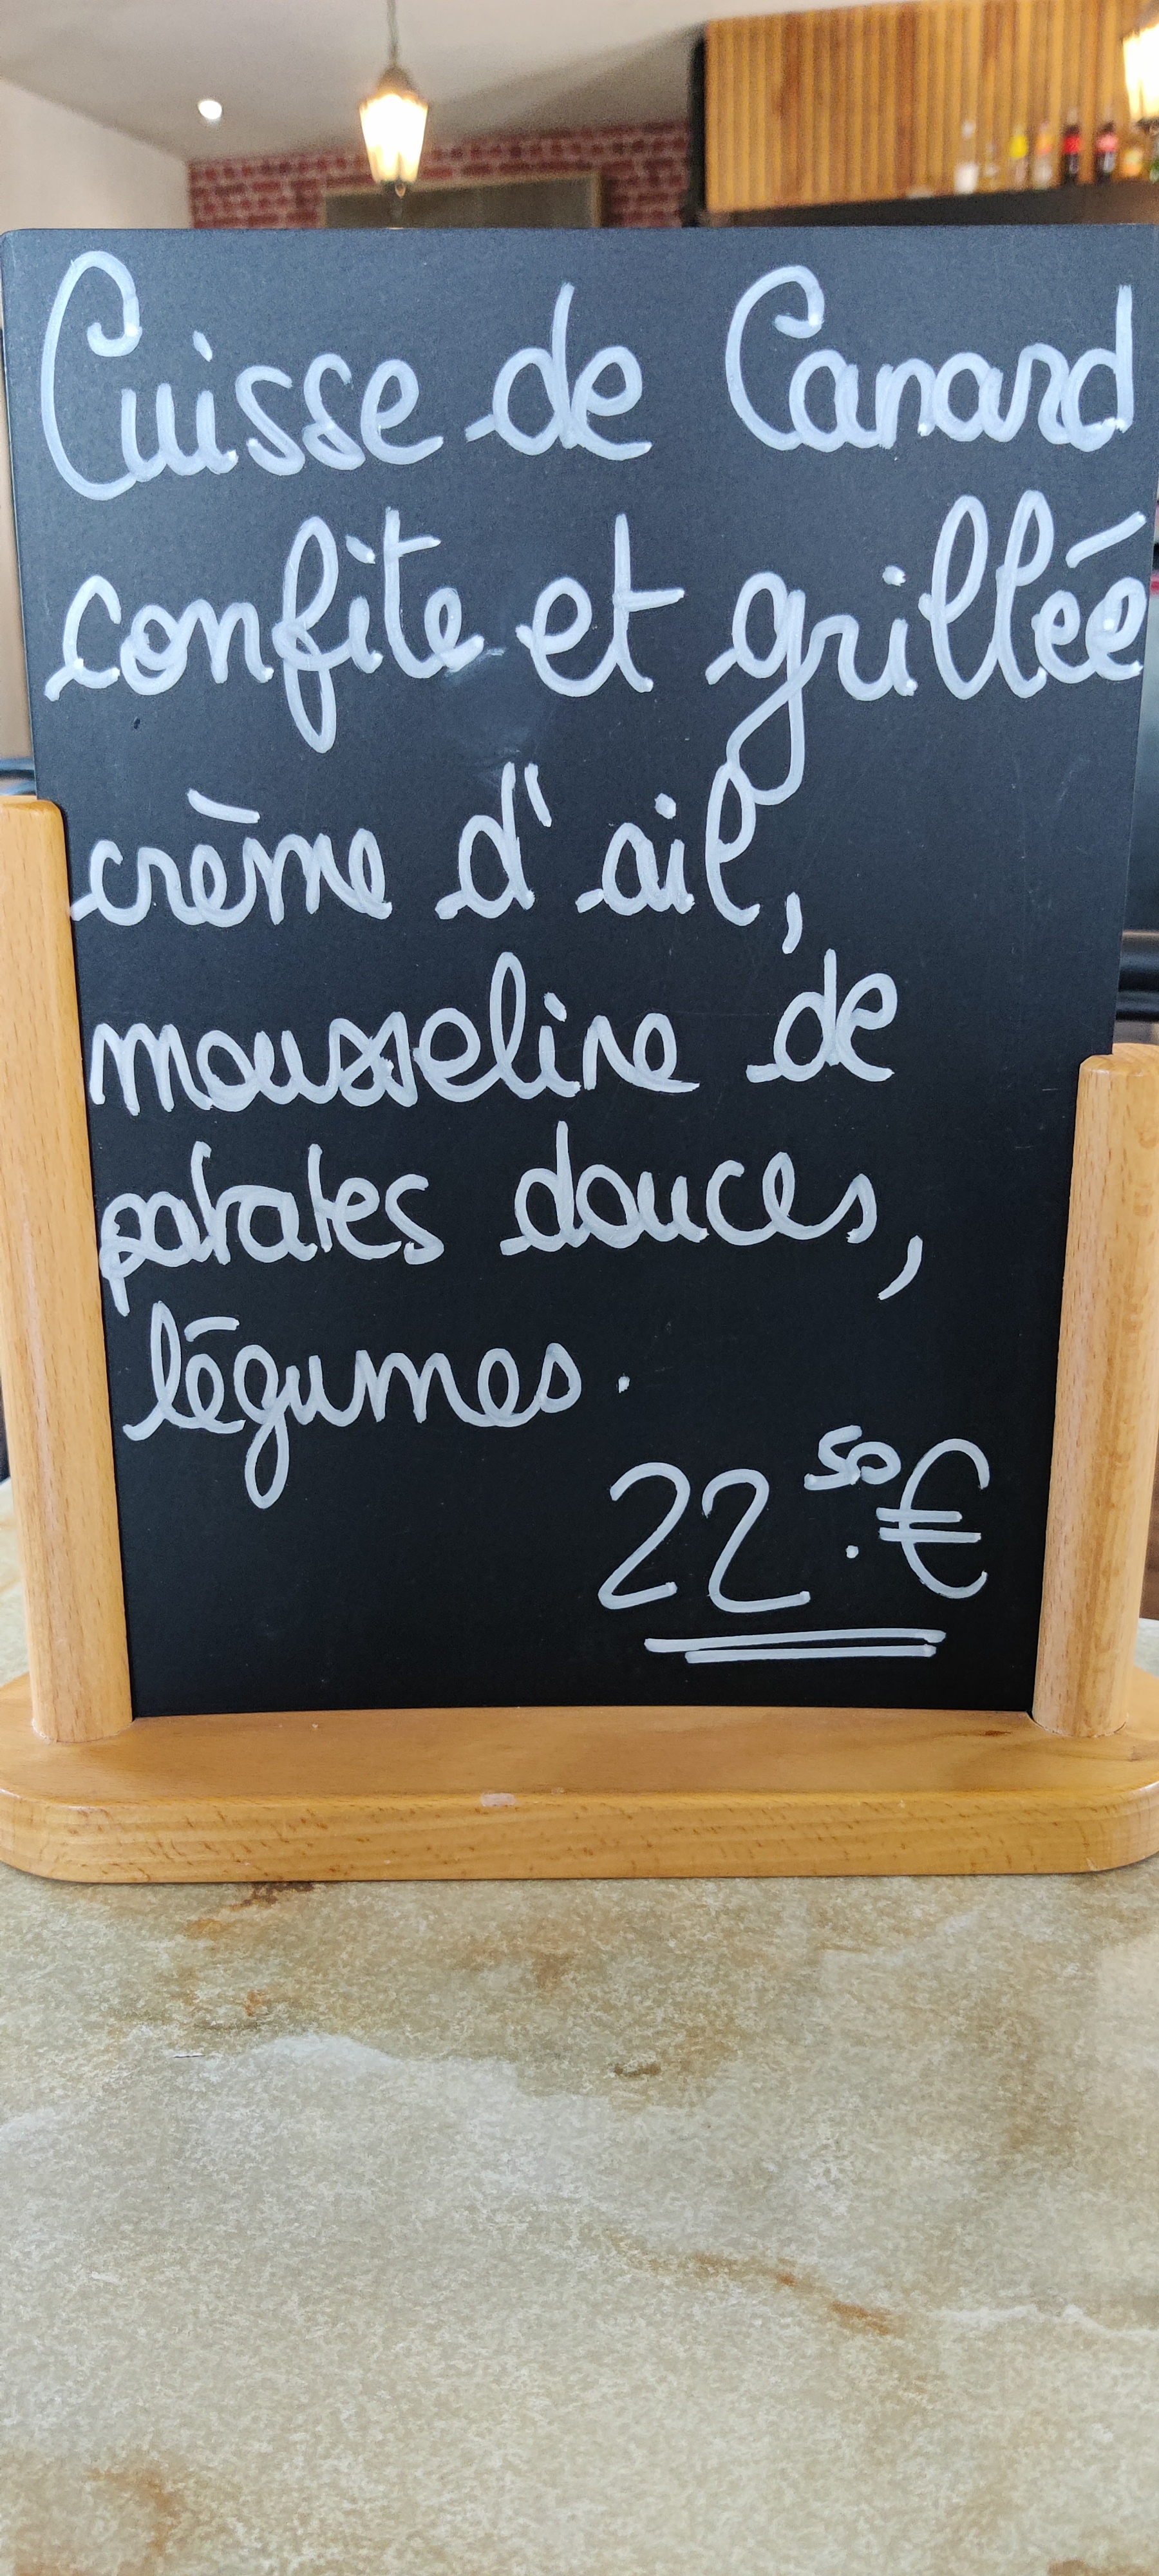 Cuisse de Canard
confite et grillée
crème d'ail,
mousseline de
patates douces,
légumes.
22.50€